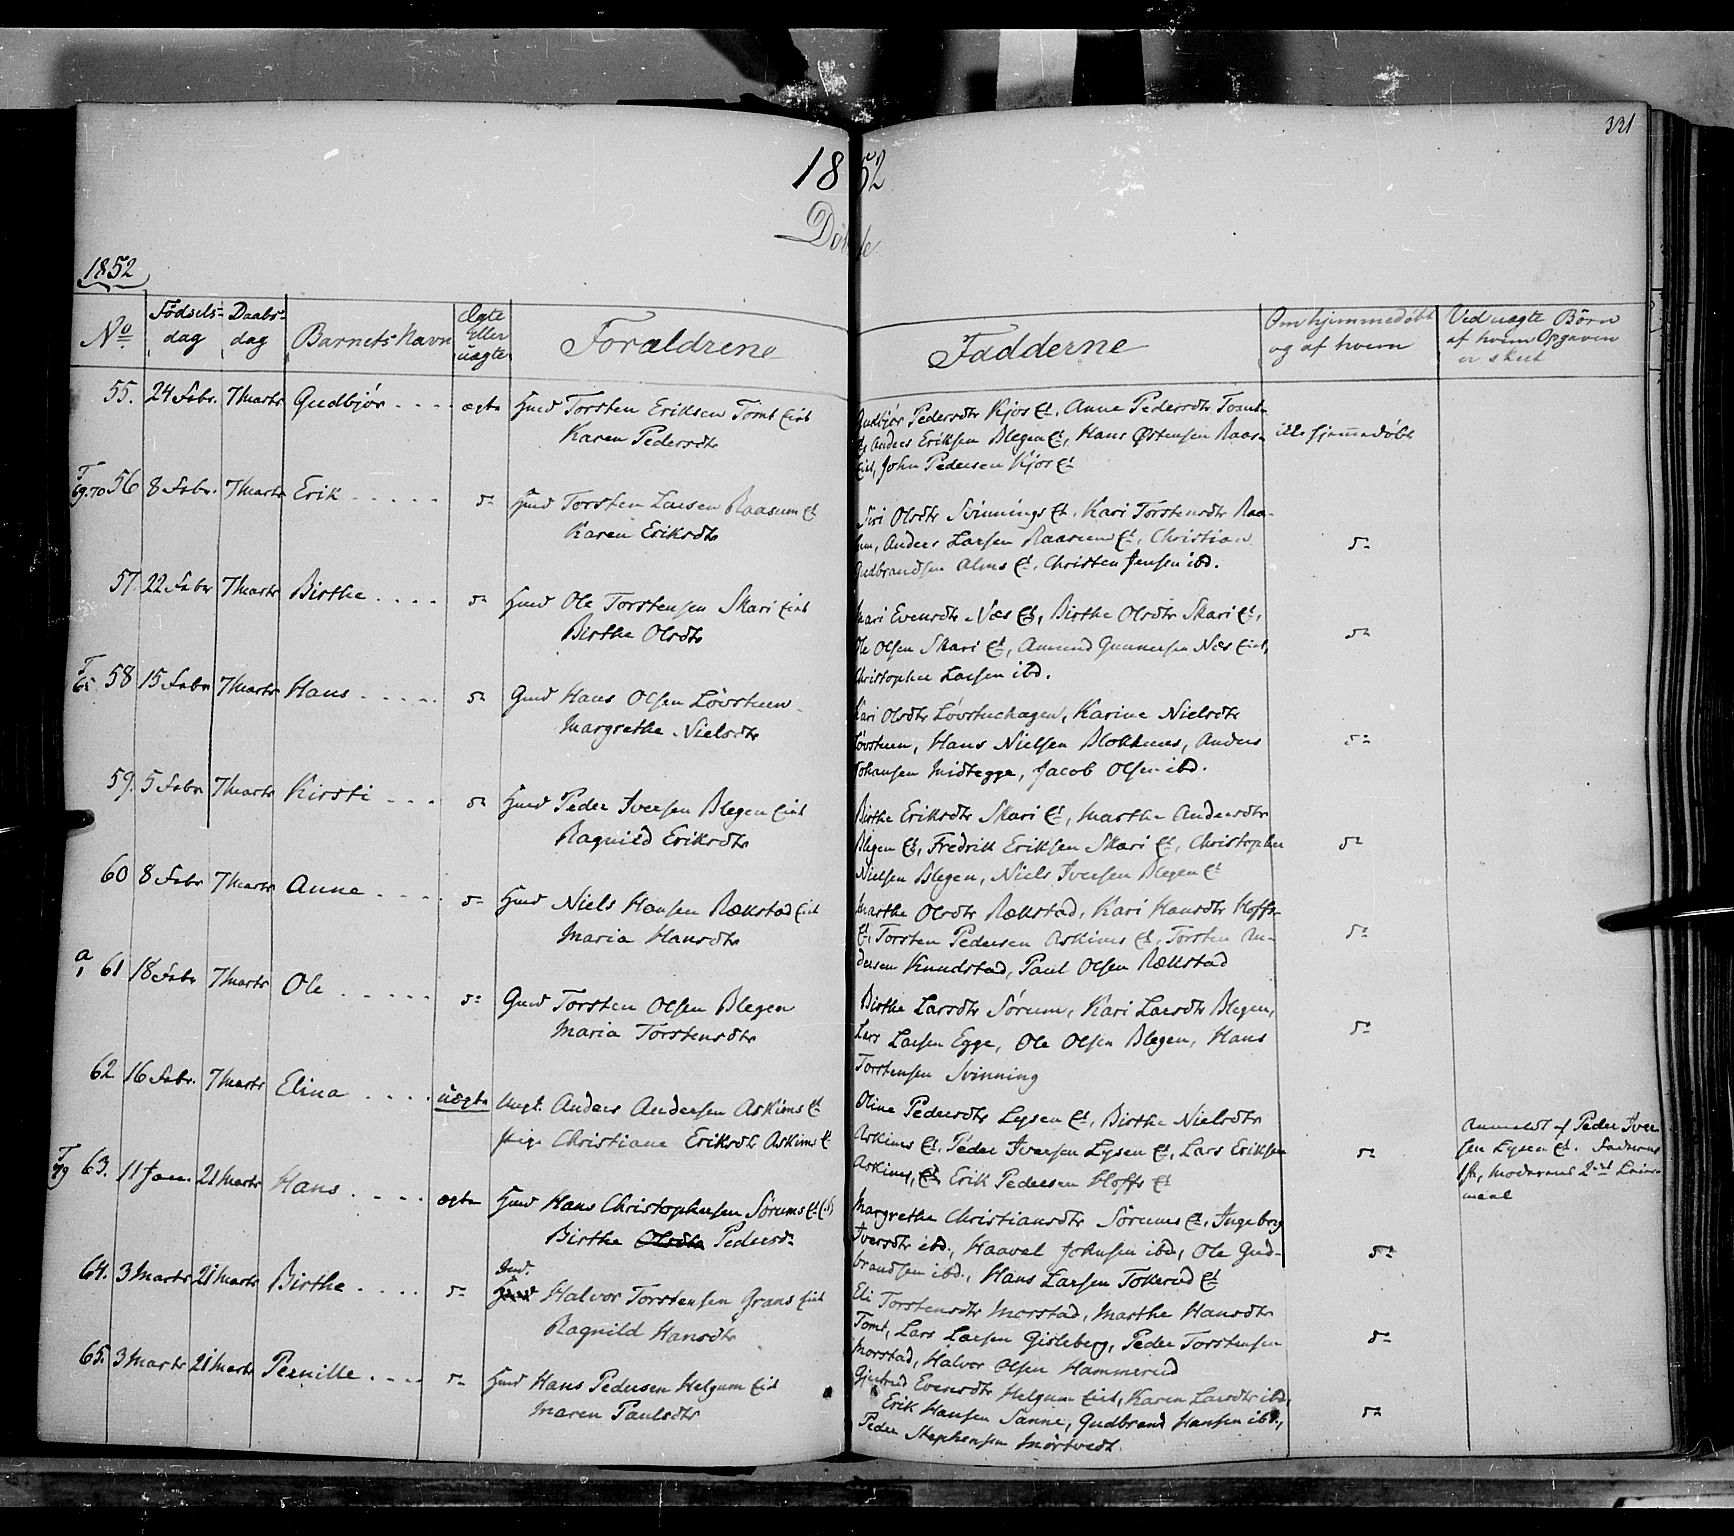 331
1852
Døbte
1852
No. Fødsels- Daabs- Barnets Navn Ægte Forældrene Fadderne Om hjemmedøbt Ved uægte Børn
dag dag Eller og af hvem af hvem Opgaven
uægte er skeet
55. 24 Febr. 7 Marts Gudbjør ægte Huusmd Torsten Eriksen Tomt Eiet
Karen Pedersdtr
Gudbjør Pedersdtr Kjos Et, Anne Pedersdtr Tomt
Anders Eriksen Blegen Et, Hans Østensen Raas-
John Pedersen Kjos Et
ikke hjemmedøbt
56 8 Febr. 7 Marts Erik Torsten Larsen Raasum Et
Karen Eriksdtr
Siri Olsdtr Svinnings Et, Kari Torstensdtr Raa-
sum, Anders Larsen Raasum Et, Christian
Gudbrandsen Alms Et, Christen Jensen ibd.
57. 22 Febr 7 Marts Birthe Ole Torstensen Skari Eiet
Birthe Olsdtr
Mari Evensdtr Næs Et, Birthe Olsdtr Skari Et,
Ole Olsen Skari Et, Amund Gunnersen Næs Eiet,
Christopher Larsen ibd.
58 15 Febr 7 Marts Hans Gmd Hans Olsen Løvstuen
Margrethe Nielsdtr
Kari Olsdtr Løvstuehagen, Karine Nielsdtr
Løvstuen, Hans Nielsen Blokhuus, Anders
Johansen Midtegge, Jacob Olsen ibd.
59. 5 Febr 7 Marts Kirsti Peder Iversen Blegen Eiet
Ragnild Eriksdtr
Birthe Eriksdtr Skari Et, Marthe Andersdtr
Blegen Et, Fredrik Eriksen Skari Et, Christopher
Nielsen Blegen, Niels Iversen Blegen Et
60 8 Febr 7 Marts Anne Niels Hansen Rækstad Eiet
Maria Hansdtr
Marthe Olsdtr Rækstad, Kari Hansdtr Hoffs-
Et, Torsten Pedersen Askims Et, Torsten An-
dersen Knudstad, Paul Olsen Rækstad
61 18 Febr 7 Marts Ole Gmd Torsten Olsen Blegen
Maria Torstensdtr
Birthe Larsdtr Sørum, Kari Larsdtr Blegen,
Lars Larsen Egge, Ole Olsen Blegen, Hans
Torstensen Svinning
62 16 Febr. 7 Marts Elina uægte Ungk. Anders Andersen Askims Et
Pige Christiane Eriksdtr Askims Et
Oline Pedersdtr Lysen Et, Birthe Nielsdtr
Askims Et, Peder Iversen Lysen Et, Lars Eriksen
Askims, Et, Erik Pedersen Hoffs Et
Anmeldt af Peder Iver-
sen Lysen Et. Faderens
1ste, Moderens 2det Leier-
maal
63. 11 Jan. 21 Marts Hans ægte Hans Christophersen Sørums Et
Birthe Olsdtr Pedersdr
Margrethe Christiansdtr Sørums Et, Ingeborg
Iversdtr ibd., Haavel Johnsen ibd., Ole Gud-
brandsen ibd., Hans Larsen Tokerud Et
64. 3 Marts 21 Marts Birthe Halvor Torstensen Grans Eiet
Ragnild Hansdtr
Eli Torstensdtr Morstad, Marthe Hansdtr
Tomt, Lars Larsen Gisleberg, Peder Torstensen
Morstad, Halvor Olsen Hammerud
65. 3 Marts 21 Marts Pernille Hans Pedersen Helgum Eiet
Maren Paulsdtr
Gjertrud Evensdtr Helgum Eiet, Karen Larsdtr ibd,
Erik Hansen Sanne, Gudbrand Hansen ibd,
Peder Stephensen Mørtvedt.